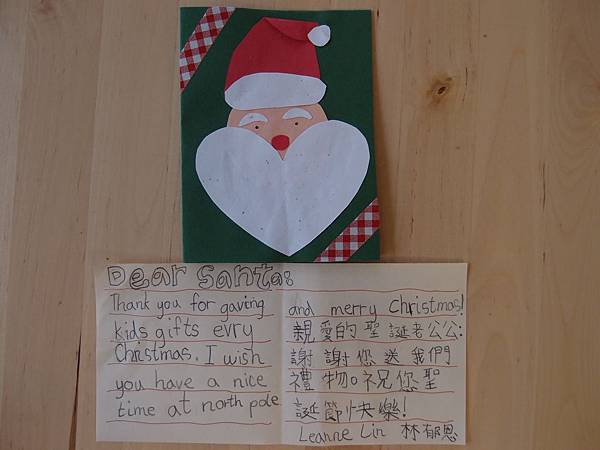 Dear Santa:
Thank you for gaving
kids gifts evry
Christmas. I wish
you have a nice
time at north pole
and merry Christmas!
親愛的聖誕老公公:
謝謝您送我們
禮物。祝您聖
誕節快樂!
Leanne Lin 林郁恩